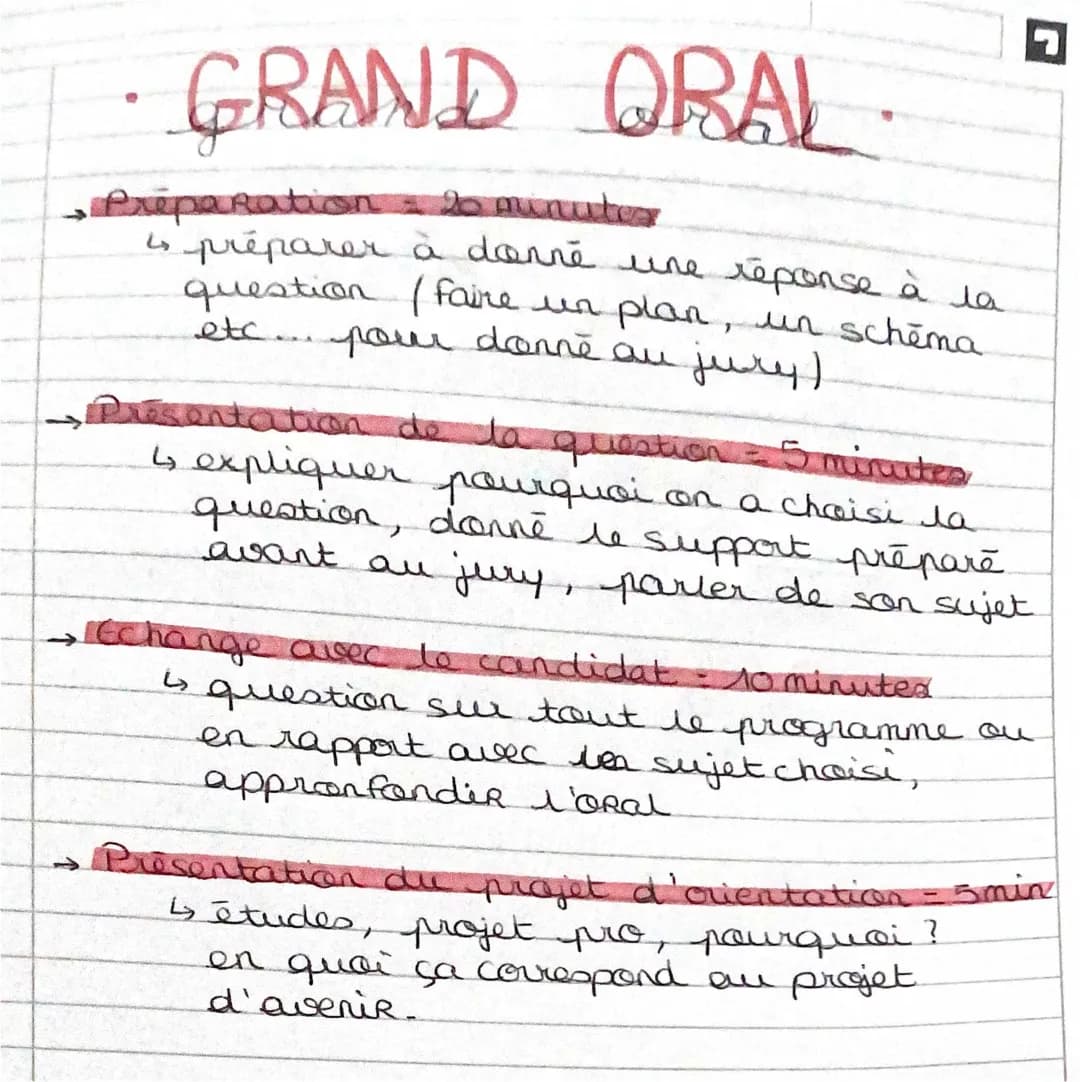 . GRAND ORAL.
grand oral
→ Préparation = 20 minutes
↳ préparer à donné une réponse à la
question (faire un plan, un schéma
etc... pour donné au jury)
→ Présentation de la question = 5 minutes
↳ expliquer pourquoi on a choisi la
question, donné le support préparé
avant au jury, parler de son sujet
→ Echange avec le candidat = 10 minutes
↳ question sur tout le programme ou
en rapport avec les sujet choisi,
appronfondir l'oral
→ Présentation du projet d'orientation = 5 min
↳ études, projet pro, pourquoi ?
en quoi ça correspond au projet
d'avenir.